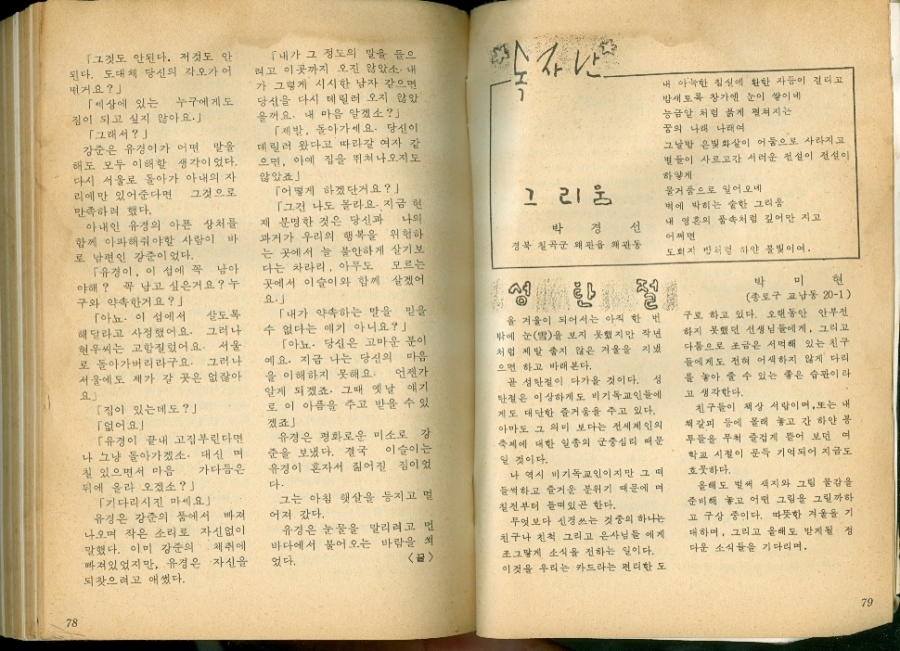 「그것도 안된다. 저것도 안
된다. 도대체 당신의 각오가 어
떤거요?」
「세상에 있는 누구에게도
짐이 되고 싶지 않아요.」
「그래서?」
강준은 유경이가 어떤 말을
해도 모두 이해할 생각이었다.
다시 서울로 돌아가 아내의 자
리에만 있어준다면 그것으로
만족하려 했다.
아내인 유경의 아픈 상처를
함께 아파해줘야할 사람이 바
로 남편인 강준이었다.
「유경이, 이 섬에 꼭 남아
야해? 꼭 남고 싶은거요? 누
구와 약속한거요?」
「아뇨. 이 섬에서 살도록
해달라고 사정했어요. 그러나
현우씨는 고함질렀어요. 서울
로 돌아가버리라구요. 그러나
서울에도 제가 갈 곳은 없잖아
요」
「집이 있는데도?」
「없어요」
「유경이 끝내 고집부린다면
나 그냥 돌아가겠소. 대신 며
칠 있으면서 마음 가다듬은
뒤에 올라 오겠소?」
「기다리시진 마세요」
유경은 강준의 품에서 빠져
나오며 작은 소리로 자신없이
말했다. 이미 강준의 체취에
빠져있었지만, 유경은 자신을
되찾으려고 애썼다.
「내가 그 정도의 말을 들으
려고 이곳까지 오진 않았소. 내
가 그렇게 시시한 남자 같으면
당신을 다시 데릴러 오지 않았
을꺼요. 내 마음 알겠소?」
「제발, 돌아가세요. 당신이
데릴러 왔다고 따라갈 여자 같
으면, 아예 집을 뛰쳐나오지도
않았죠」
「어떻게 하겠단거요?」
「그건 나도 몰라요. 지금 현
재 분명한 것은 당신과 나의
과거가 우리의 행복을 위험하
는 곳에서 늘 불안하게 살기보
다는 차라리, 아무도 모르는
곳에서 이슬이와 함께 살겠어
요.」
「내가 약속하는 말을 믿을
수 없다는 얘기 아니요?」
「아뇨. 당신은 고마운 분이
예요. 지금 나는 당신의 마음
을 이해하지 못해요. 언젠가
알게 되겠죠. 그때 옛날 얘기
로 이 아픔을 주고 받을 수 있
겠죠」
유경은 평화로운 미소로 강
준을 보냈다. 결국 이슬이는
유경이 혼자서 짊어질 짐이었
다.
그는 아침 햇살을 등지고 멀
어져 갔다.
유경은 눈물을 말리려고 먼
바다에서 불어오는 바람을 쐬
었다. 〈끝〉
78
독자난
그리움
박 경 선
경북 칠곡군 왜관읍 왜관동
내 아늑한 침실에 환한 자등이 걸리고
밤새토록 창가엔 눈이 쌓이네
능금알 처럼 붉게 펼쳐지는
꿈의 나래 나래여
그날밤 은빛화살이 어둠으로 사라지고
별들이 사르고간 서러운 전설이 전설이
하얗게
물거품으로 일어오네
벽에 박히는 숱한 그리움
내 영혼의 품속처럼 깊어만 지고
어쩌면
도회지 병처럼 하얀 불빛이여.
성탄절
박 미 현
(종로구 교남동 20-1)
올 겨울이 되어서는 아직 한 번
밖에 눈(雪)을 보지 못했지만 작년
처럼 제발 춥지 않은 겨울을 지냈
으면 하고 바래본다.
곧 성탄절이 다가올 것이다. 성
탄절은 이상하게도 비기독교인들에
게도 대단한 즐거움을 주고 있다.
아마도 그 의미 보다는 전세계인의
축제에 대한 일종의 군중심리 때문
일 것이다.
나 역시 비기독교인이지만 그 떠
들썩하고 즐거운 분위기 때문에 며
칠전부터 들떠있곤 한다.
무엇보다 신경쓰는 것중의 하나는
친구나 친척 그리고 은사님들 에게
조그맣게 소식을 전하는 일이다.
이것을 우리는 카드라는 편리한 도
구로 하고 있다. 오랜동안 안부전
하지 못했던 선생님들에게, 그리고
다툼으로 조금은 서먹해 있는 친구
들에게도 전혀 어색하지 않게 다리
를 놓아 줄 수 있는 좋은 습관이라
고 생각한다.
친구들이 책상 서랍이며, 또는 내
책갈피 등에 몰래 놓고 간 하얀 봉
투들을 무척 즐겁게 뜯어 보던 여
학교 시절이 문득 기억되어 지금도
흐뭇하다.
올해도 벌써 색지와 그림 물감을
준비해 놓고 어떤 그림을 그릴까하
고 구상 중이다. 따뜻한 겨울을 기
대하며, 그리고 올해도 받게될 정
다운 소식들을 기다리며.
79